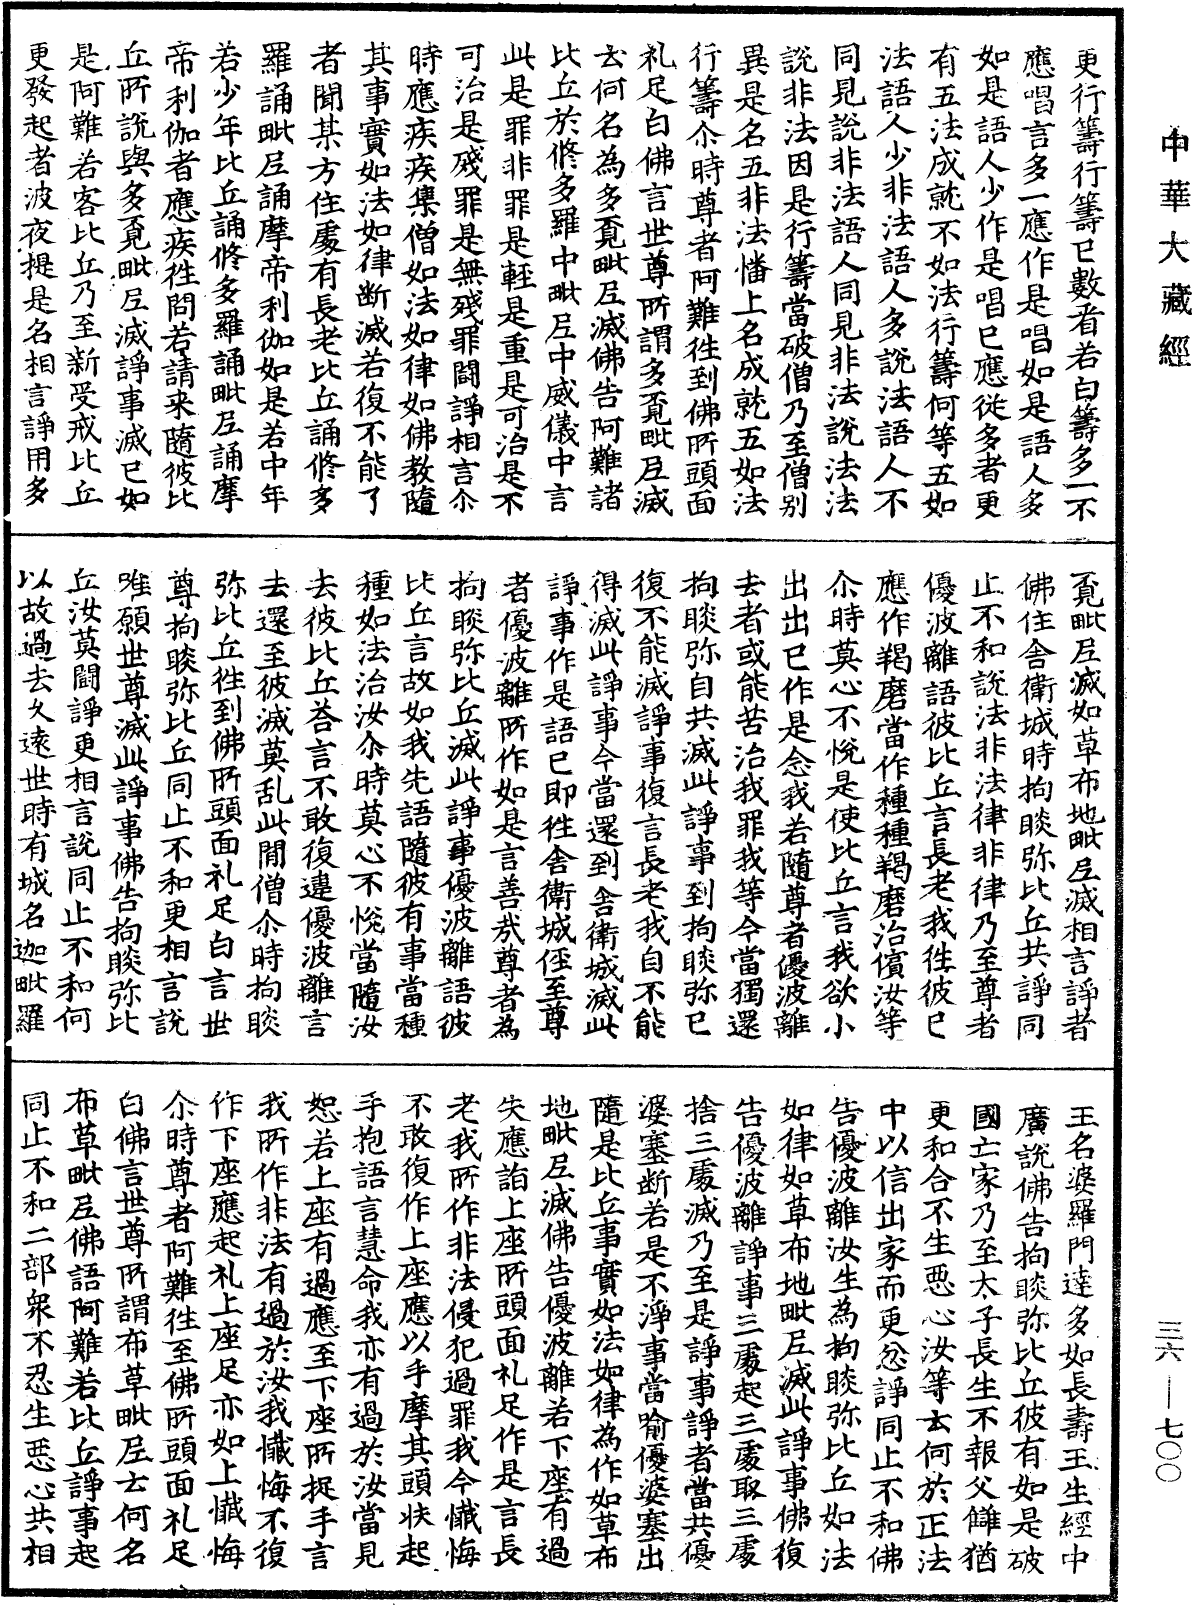 中華大藏經
更行籌行籌已數看若白籌多一不
應唱言多一應作是唱如是語人多
如是語人少作是唱已應從多者更
有五法成就不如法行籌何等五如
法語人少非法語人多說法語人不
同見說非法語人同見非法說法法
說非法因是行籌當破僧乃至僧別
異是名五非法憣上名成就五如法
行籌尒時尊者阿難往到佛所頭面
礼足白佛言世尊所謂多覓毗尼滅
云何名為多覓毗尼滅佛告阿難諸
比丘於修多羅中毗尼中威儀中言
此是罪非罪是輕是重是可治是不
可治是殘罪是無殘罪鬪諍相言尒
時應疾疾集僧如法如律如佛教隨
其事實如法如律斷滅若復不能了
者聞某方住處有長老比丘誦修多
羅誦毗尼誦摩帝利伽如是若中年
若少年比丘誦修多羅誦毗尼誦摩
帝利伽者應疾往問若請来隨彼比
丘所說與多覓毗尼滅諍事滅已如
是阿難若客比丘乃至新受戒比丘
更發起者波夜提是名相言諍用多
覓毗尼滅如草布地毗尼滅相言諍者
佛住舍衛城時拘睒弥比丘共諍同
止不和說法非法律非律乃至尊者
優波離語彼比丘言長老我往彼已
應作羯磨當作種種羯磨治儐汝等
尒時莫心不悅是使比丘言我欲小
出出已作是念我若隨尊者優波離
去者或能苦治我罪我等今當獨還
拘睒弥自共滅此諍事到拘睒弥已
復不能滅諍事復言長老我自不能
得滅此諍事今當還到舍衛城滅此
諍事作是語已即往舍衛城侄至尊
者優波離所作如是言善哉尊者為
拘睒弥比丘滅此諍事優波離語彼
比丘言故如我先語隨彼有事當種
種如法治汝尒時莫心不悅當隨汝
去彼比丘荅言不敢復違優波離言
去還至彼滅莫乱此間僧尒時拘睒
弥比丘往到佛所頭面礼足白言世
尊拘睒弥比丘同止不和更相言說
唯願世尊滅此諍事佛告拘睒弥比
丘汝莫鬪諍更相言說同止不和何
以故過去久遠世時有城名迦毗羅
王名婆羅門達多如長壽王生經中
廣說佛告拘睒弥比丘彼有如是破
國亡家乃至太子長生不報父讎猶
更和合不生惡心汝等云何於正法
中以信出家而更忿諍同止不和佛
告優波離汝生為拘睒弥比丘如法
如律如草布地毗尼滅此諍事佛復
告優波離諍事三處起三處取三處
捨三處滅乃至是諍事諍者當共優
婆塞断若是不淨事當喻優婆塞出
隨是比丘事實如法如律為作如草布
地毗尼滅佛告優波離若下座有過
失應詣上座所頭面礼足作是言長
老我所作非法侵犯過罪我今懺悔
不敢復作上座應以手摩其頭扶起
手抱語言慧命我亦有過於汝當見
恕若上座有過應至下座所捉手言
我所作非法有過於汝我懺悔不復
作下座應起礼上座足亦如上懺悔
尒時尊者阿難往至佛所頭面礼足
白佛言世尊所謂布草毗尼云何名
布草毗尼佛語阿難若比丘諍事起
同止不和二部衆不忍生惡心共相
三六—七〇〇